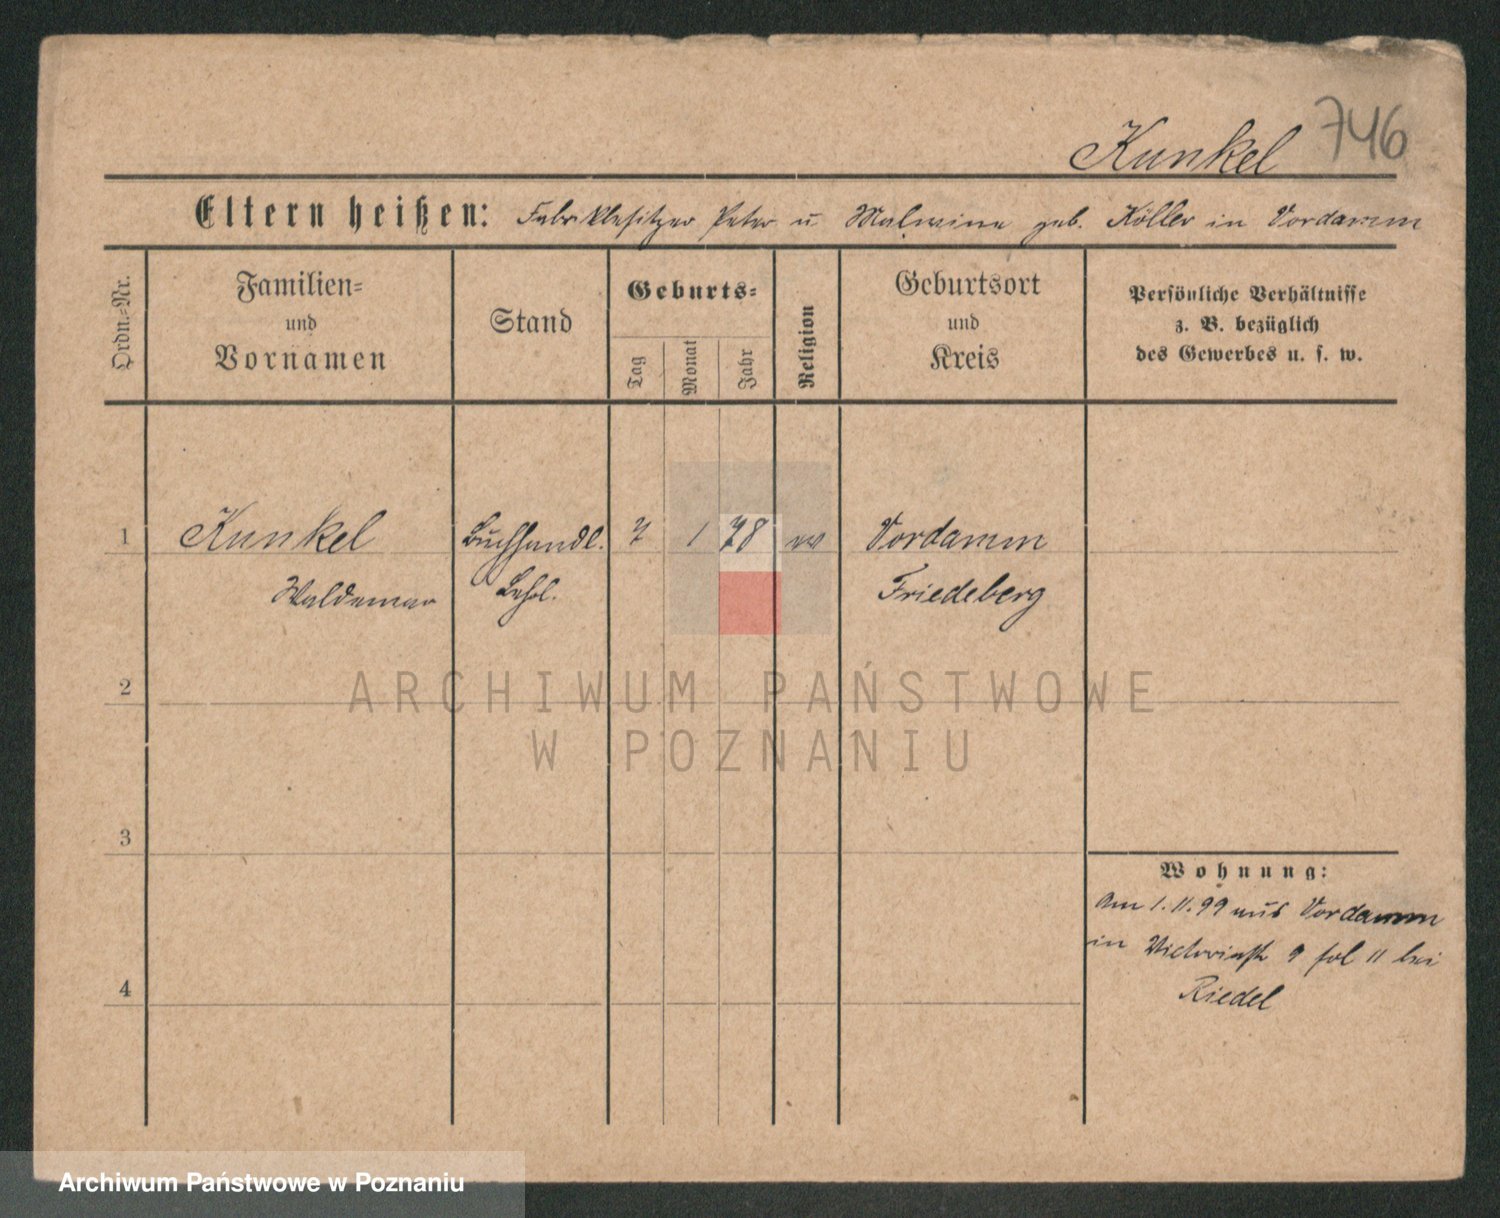 746
Kunkel
Eltern heißen: Fabrikbesitzer Peter u Malwine geb. Köller in Vordamm
Ordn.-Nr.
Familien-
und
Vornamen
Stand
Geburts-
Tag
Monat
Jahr
Religion
Geburtsort
und
Kreis
Persönliche Verhältnisse
z. B. bezüglich
des Gewerbes u. s. w.
1 Kunkel Buchhandl. 7 1 78 ev Vordamm
Waldemar Lehrl. Friedeberg
2
3
4
Wohnung:
Am 1.11.99 aus Vordamm
in Victoriastr 9 fol 11 bei
Riedel
ARCHIWUM PAŃSTWOWE
W POZNANIU
Archiwum Państwowe w Poznaniu